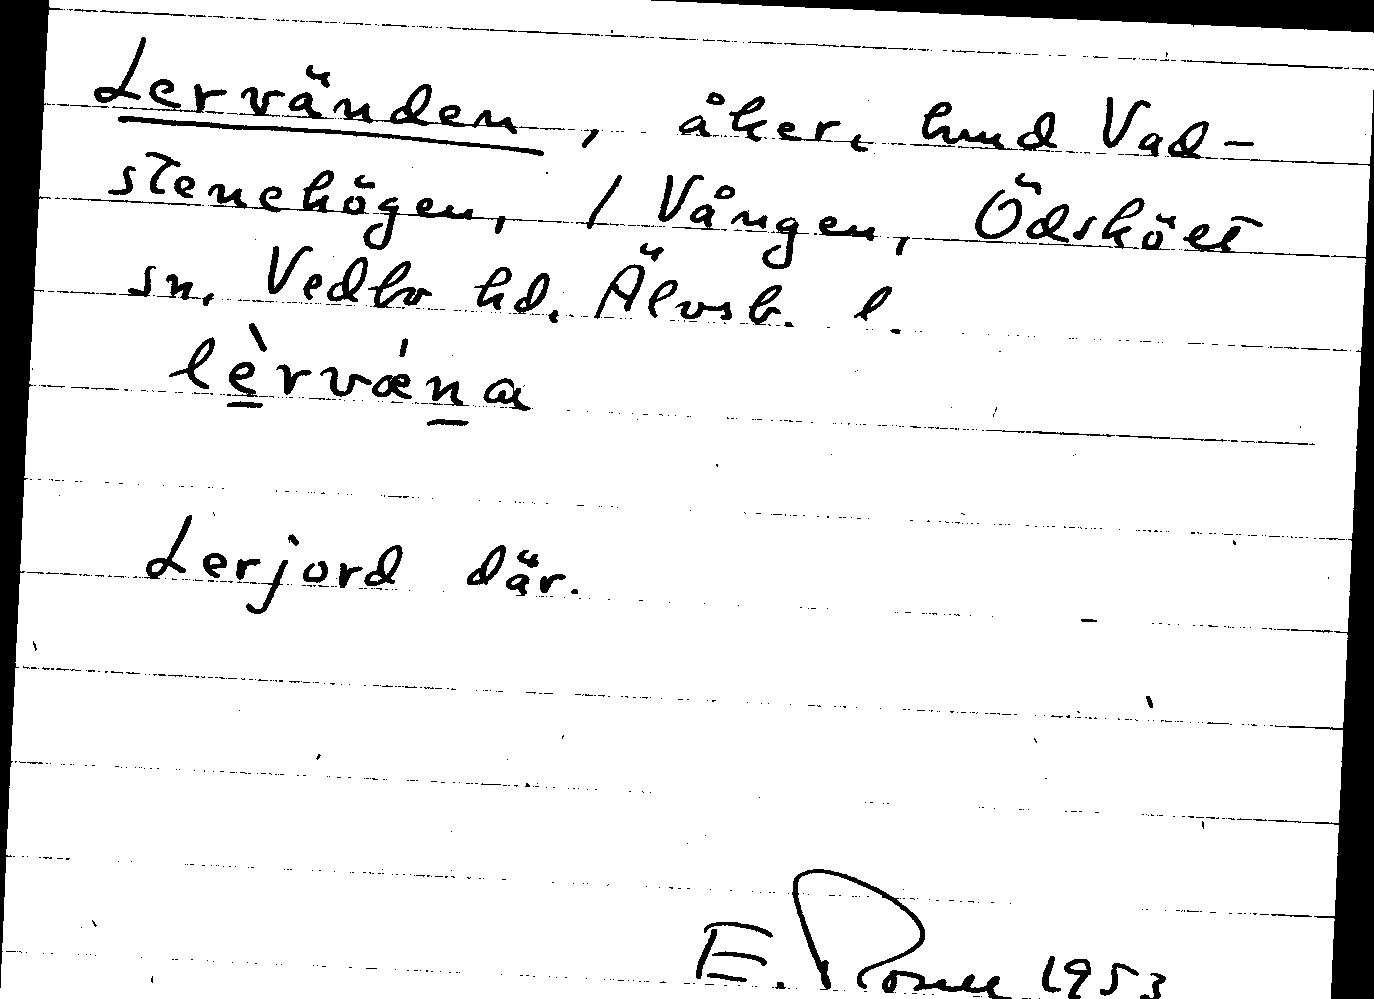 Lervänden, åker, hmd Vad-
stenehögen, / Vången, Ödsköts
sn, Vedbo hd, Älvsb. l.
lèrvǽna
Lerjord där.
E. 1953